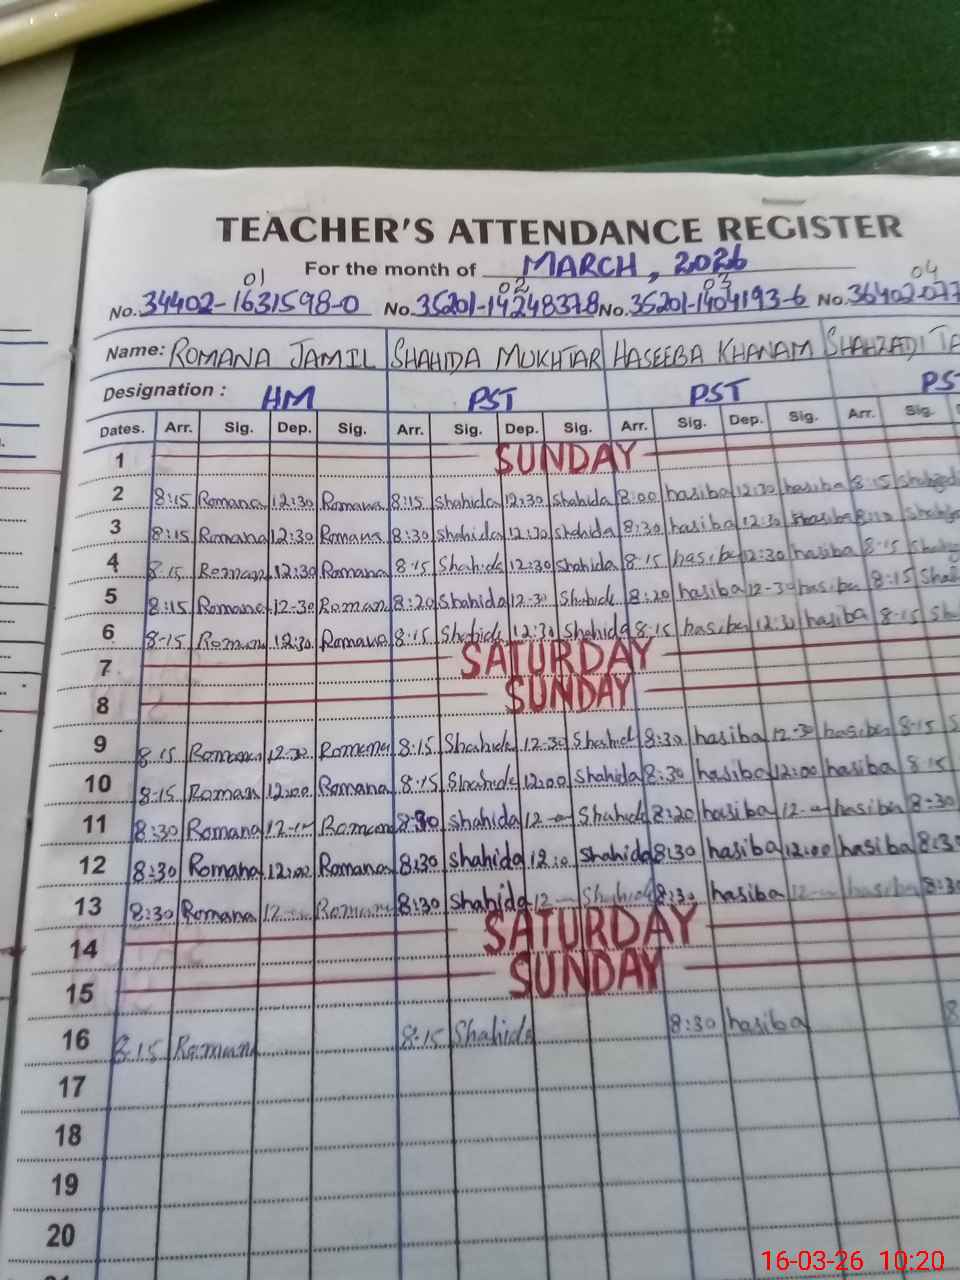 TEACHER'S ATTENDANCE REGISTER
For the month of MARCH, 2026
01 02 03 04
No. 34402-1631598-0 No. 35201-1424837-8 No. 35201-1404193-6 No. 36402-077
Name: ROMANA JAMIL SHAHIDA MUKHTAR HASEEBA KHANAM SHAHZADI TA
Designation : HM PST PST PS
Dates. Arr. Sig. Dep. Sig. Arr. Sig. Dep. Sig. Arr. Sig. Dep. Sig. Arr. Sig.
1 SUNDAY
2 8:15 Romana 12:30 Romana 8:15 Shahida 12:30 Shahida 8:00 hasiba 12:30 hasiba 8:15
3 8:15 Romana 12:30 Romana 8:30 Shahida 12:30 Shahida 8:30 hasiba 12:30 hasiba
4 8:15 Roman 12:30 Romana 8:15 Shahida 12:30 Shahida 8-15 hasiba 12:30 hasiba 8-15
5 8:15 Romana 12-30 Roman 8:20 Shahida 12-30 Shahid 8:20 hasiba 12-30 hasiba 8:15
6 8-15 Roman 12:30 Romana 8:15 Shahid 12:30 Shahida 8-15 hasiba 12:30 hasiba 8-15
7 SATURDAY
8 SUNDAY
9 8:15 Romana 12-30 Romana 8:15 Shahida 12-30 Shahid 8:30 hasiba 12-30 hasiba 8-15
10 8:15 Roman 12:00 Romana 8:15 Shahida 12:00 Shahida 8:30 hasiba 12:00 hasiba 8-15
11 8:30 Romana Roman 8:30 Shahida Shahida 8:20 hasiba hasiba 8-30
12 8:30 Romana 12:00 Romana 8:30 Shahida Shahida 8:30 hasiba 12:00 hasiba 8:3
13 8:30 Romana Roman 8:30 Shahida Shahida 8:30 hasiba hasiba 8:30
14 SATURDAY
15 SUNDAY
16 8:15 Romana 8:15 Shahida 8:30 hasiba 8
17
18
19
20
16-03-26 10:20